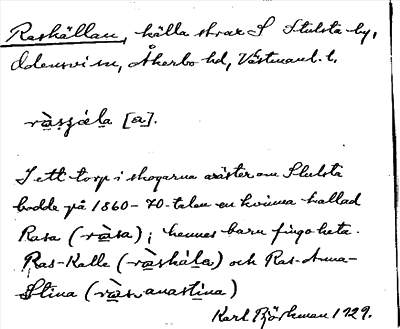 Raskällan, källa strax S Stulsta by,
Odensvi sn, Åkerbo hd, Västmanl. l.
ràsçäla [a].
I ett torp i skogarna nväster om Stulsta
bodde på 1860-70-talen en kvinna kallad
Rasa (ràsa); hennes barn fingo heta
Ras-Kalle (ràskála) och Ras-Anna-
Stina (ràsvanastina)
Karl Björkman 1929.